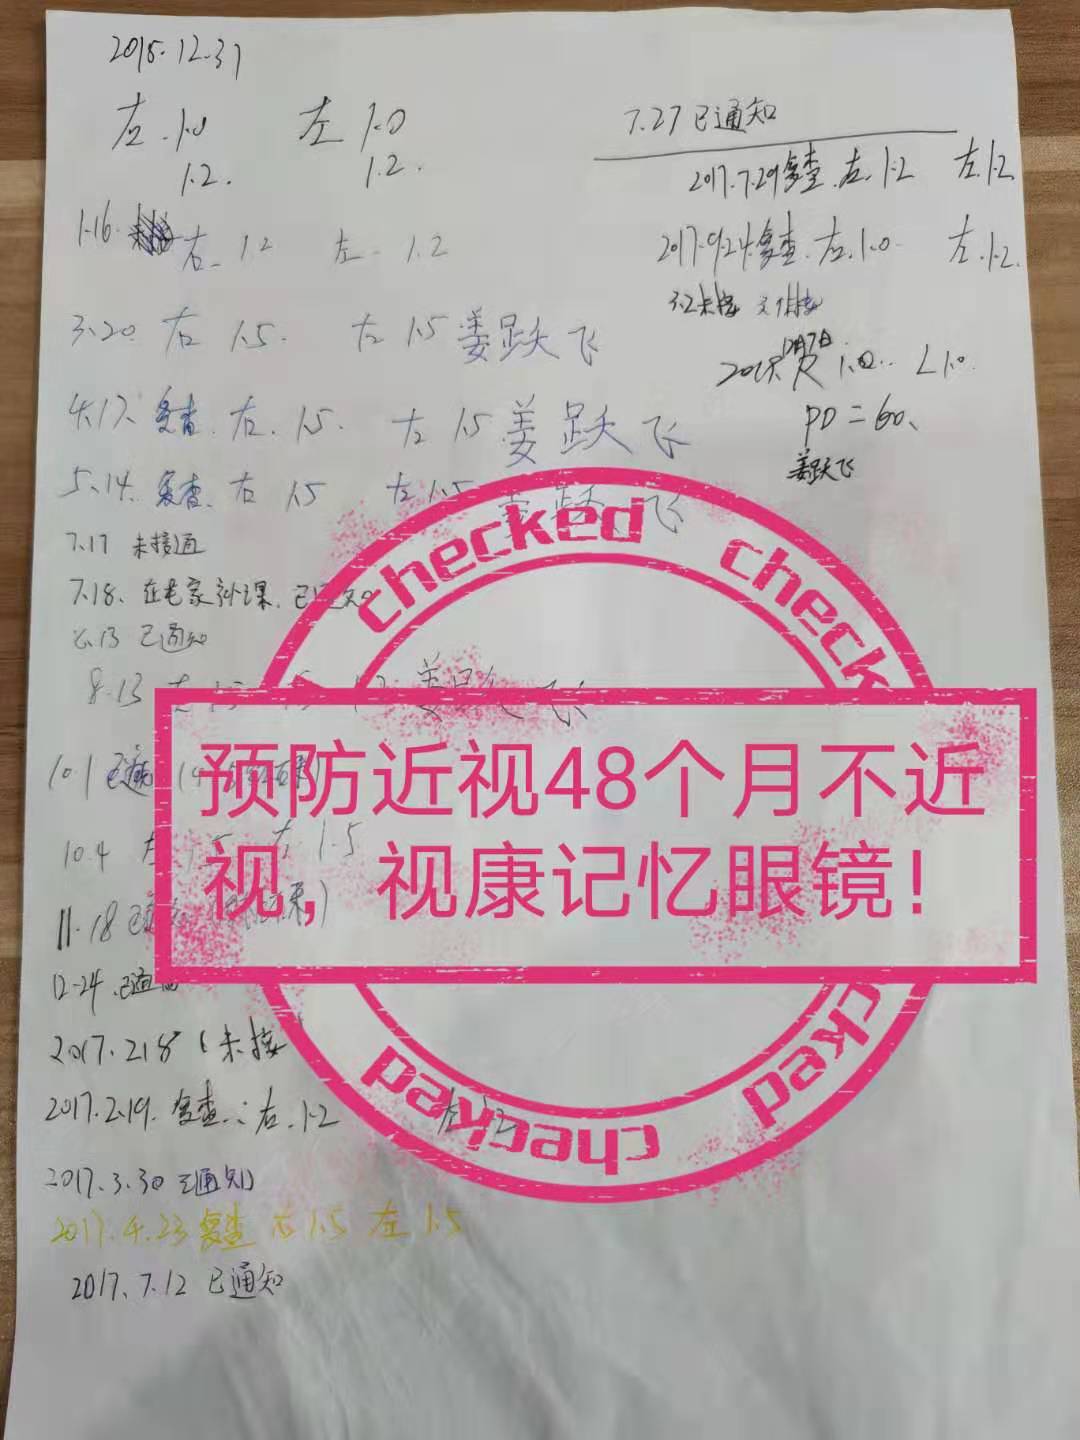 2015.12.31
右.1.0 左 1.0
1.2. 1.2.
1.16. 右. 1.2 左. 1.2
3.20. 右 1.5. 左 1.5 姜跃飞
4.17. 复查. 右. 1.5. 左 1.5 姜跃飞
5.14. 复查. 右 1.5 左 1.5 飞
7.17 未接通
7.18. 在老家补课.
13 已通知
8.13
10.1
10.4 1.5
11.18
12-24.
2017.2.18 (未接
2017.2.19. 复查.:右.1.2
2017.3.30 已通知
2017.4.23 复查 右 1.5 左 1.5
2017.7.12 已通知
7.27 已通知
2017.7.29复查.右.1.2 左.1.2
2017.9.24.复查.右.1.0. 左.1.2.
3.2未接
12月7日
R 1.0.. L 1.0.
PD=60、
姜跃飞
checked checked
预防近视48个月不近
视，视康记忆眼镜！
checked checked checked